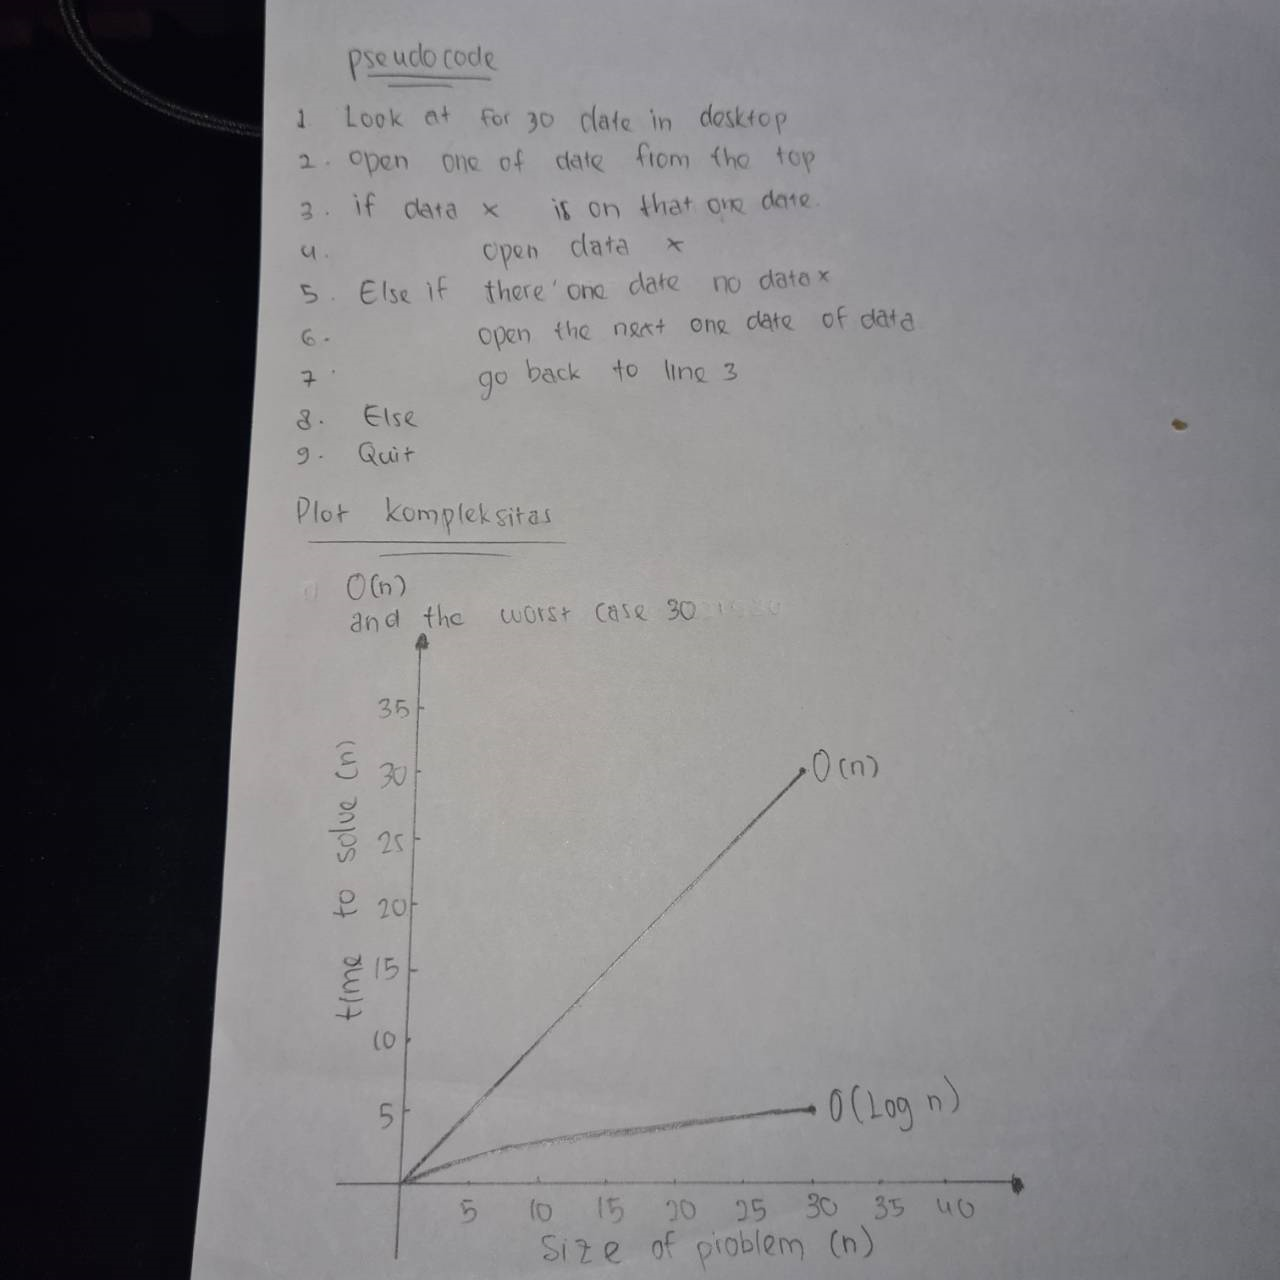 pseudocode
1 Look at for 30 date in desktop
2. open one of date from the top
3. if data x is on that one date.
4. open data x
5. Else if there' one date no data x
6. open the next one date of data
7. go back to line 3
8. Else
9. Quit
Plot kompleksitas
O(n)
and the worst case 30
35
30
25
20
15
10
5
time to solve (n)
O(n)
O(Log n)
5 10 15 20 25 30 35 40
Size of problem (n)